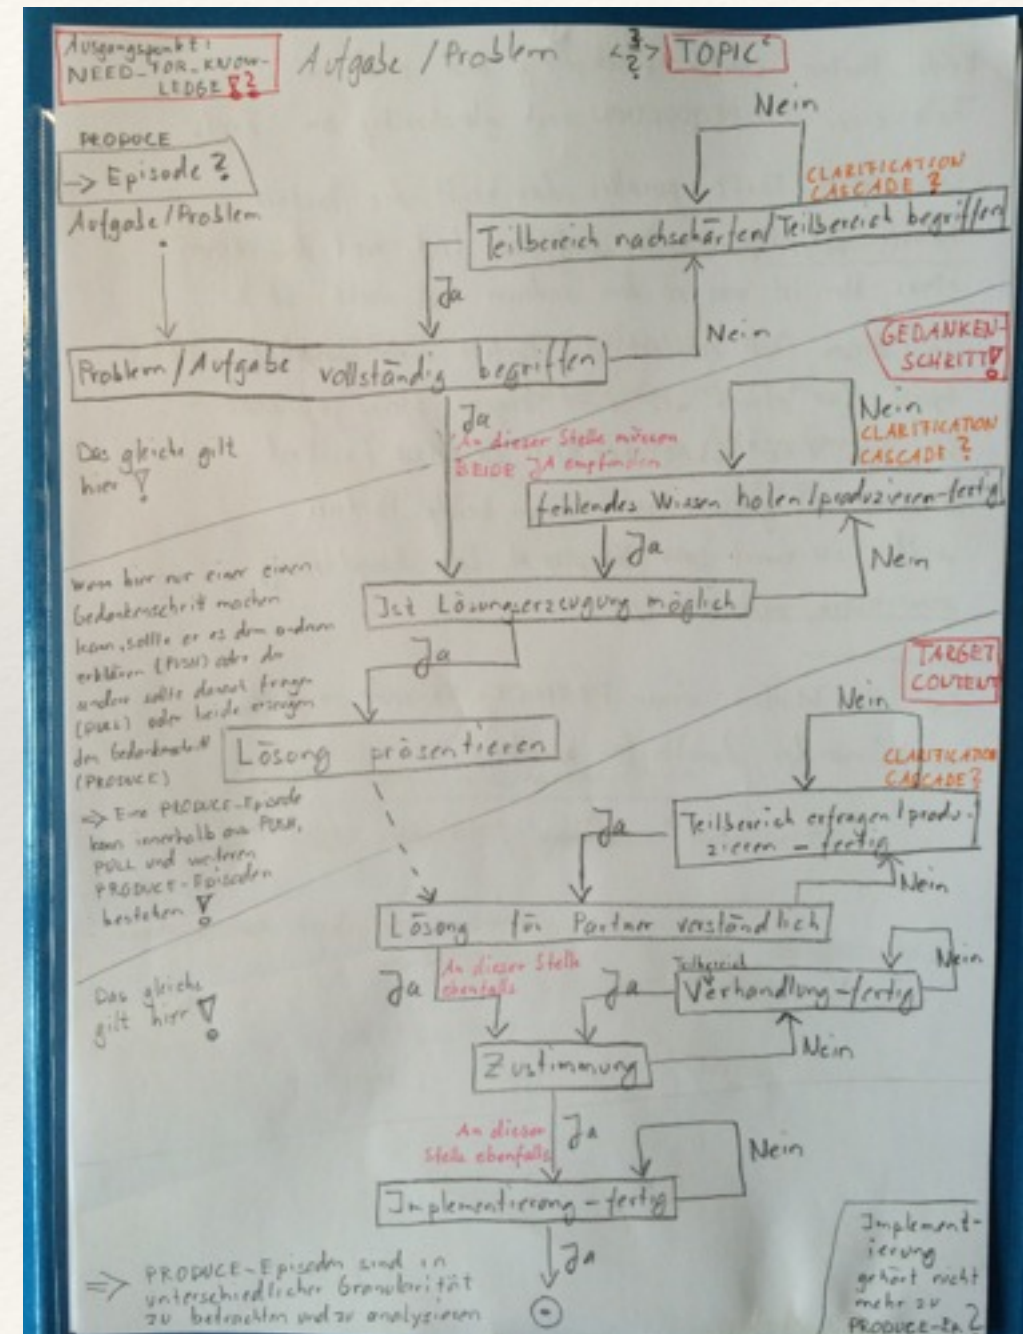 Ausgangspunkt:
NEED_FOR_KNOW-
LEDGE !?
Aufgabe / Problem <?> TOPIC
PRODUCE
-> Episode ?
Aufgabe / Problem
Nein
CLARIFICATION
CASCADE ?
Teilbereich nachschärfen / Teilbereich begriffen
Ja
Nein
Problem / Aufgabe vollständig begriffen
GEDANKEN-
SCHRITT !
Ja
An dieser Stelle müssen
BEIDE JA empfinden
Das gleiche gilt
hier !
Nein
CLARIFICATION
CASCADE ?
fehlendes Wissen holen / produzieren - fertig
Ja
Nein
Ist Lösungserzeugung möglich
Wenn hier nur einer einen
Gedankenschritt machen
kann, sollte er es dem anderen
erklären (PUSH) oder der
andere sollte danach fragen
(PULL) oder beide erzeugen
den Gedankenschritt
(PRODUCE)
=> Eine PRODUCE-Episode
kann innerhalb aus PUSH,
PULL und weiteren
PRODUCE-Episoden
bestehen !
Ja
Lösung präsentieren
TARGET
CONTENT
Nein
CLARIFICATION
CASCADE ?
Teilbereich erfragen / produ-
zieren - fertig
Ja
Nein
Lösung für Partner verständlich
Ja
An dieser Stelle
ebenfalls
Das gleiche
gilt hier !
Teilbereich
Verhandlung - fertig
Nein
Ja
Nein
Zustimmung
An dieser
Stelle ebenfalls
Ja
Nein
Implementierung - fertig
Ja
=> PRODUCE-Episoden sind in
unterschiedlicher Granularität
zu betrachten und zu analysieren
Implement-
ierung
gehört nicht
mehr zu
PRODUCE-Ep. ?